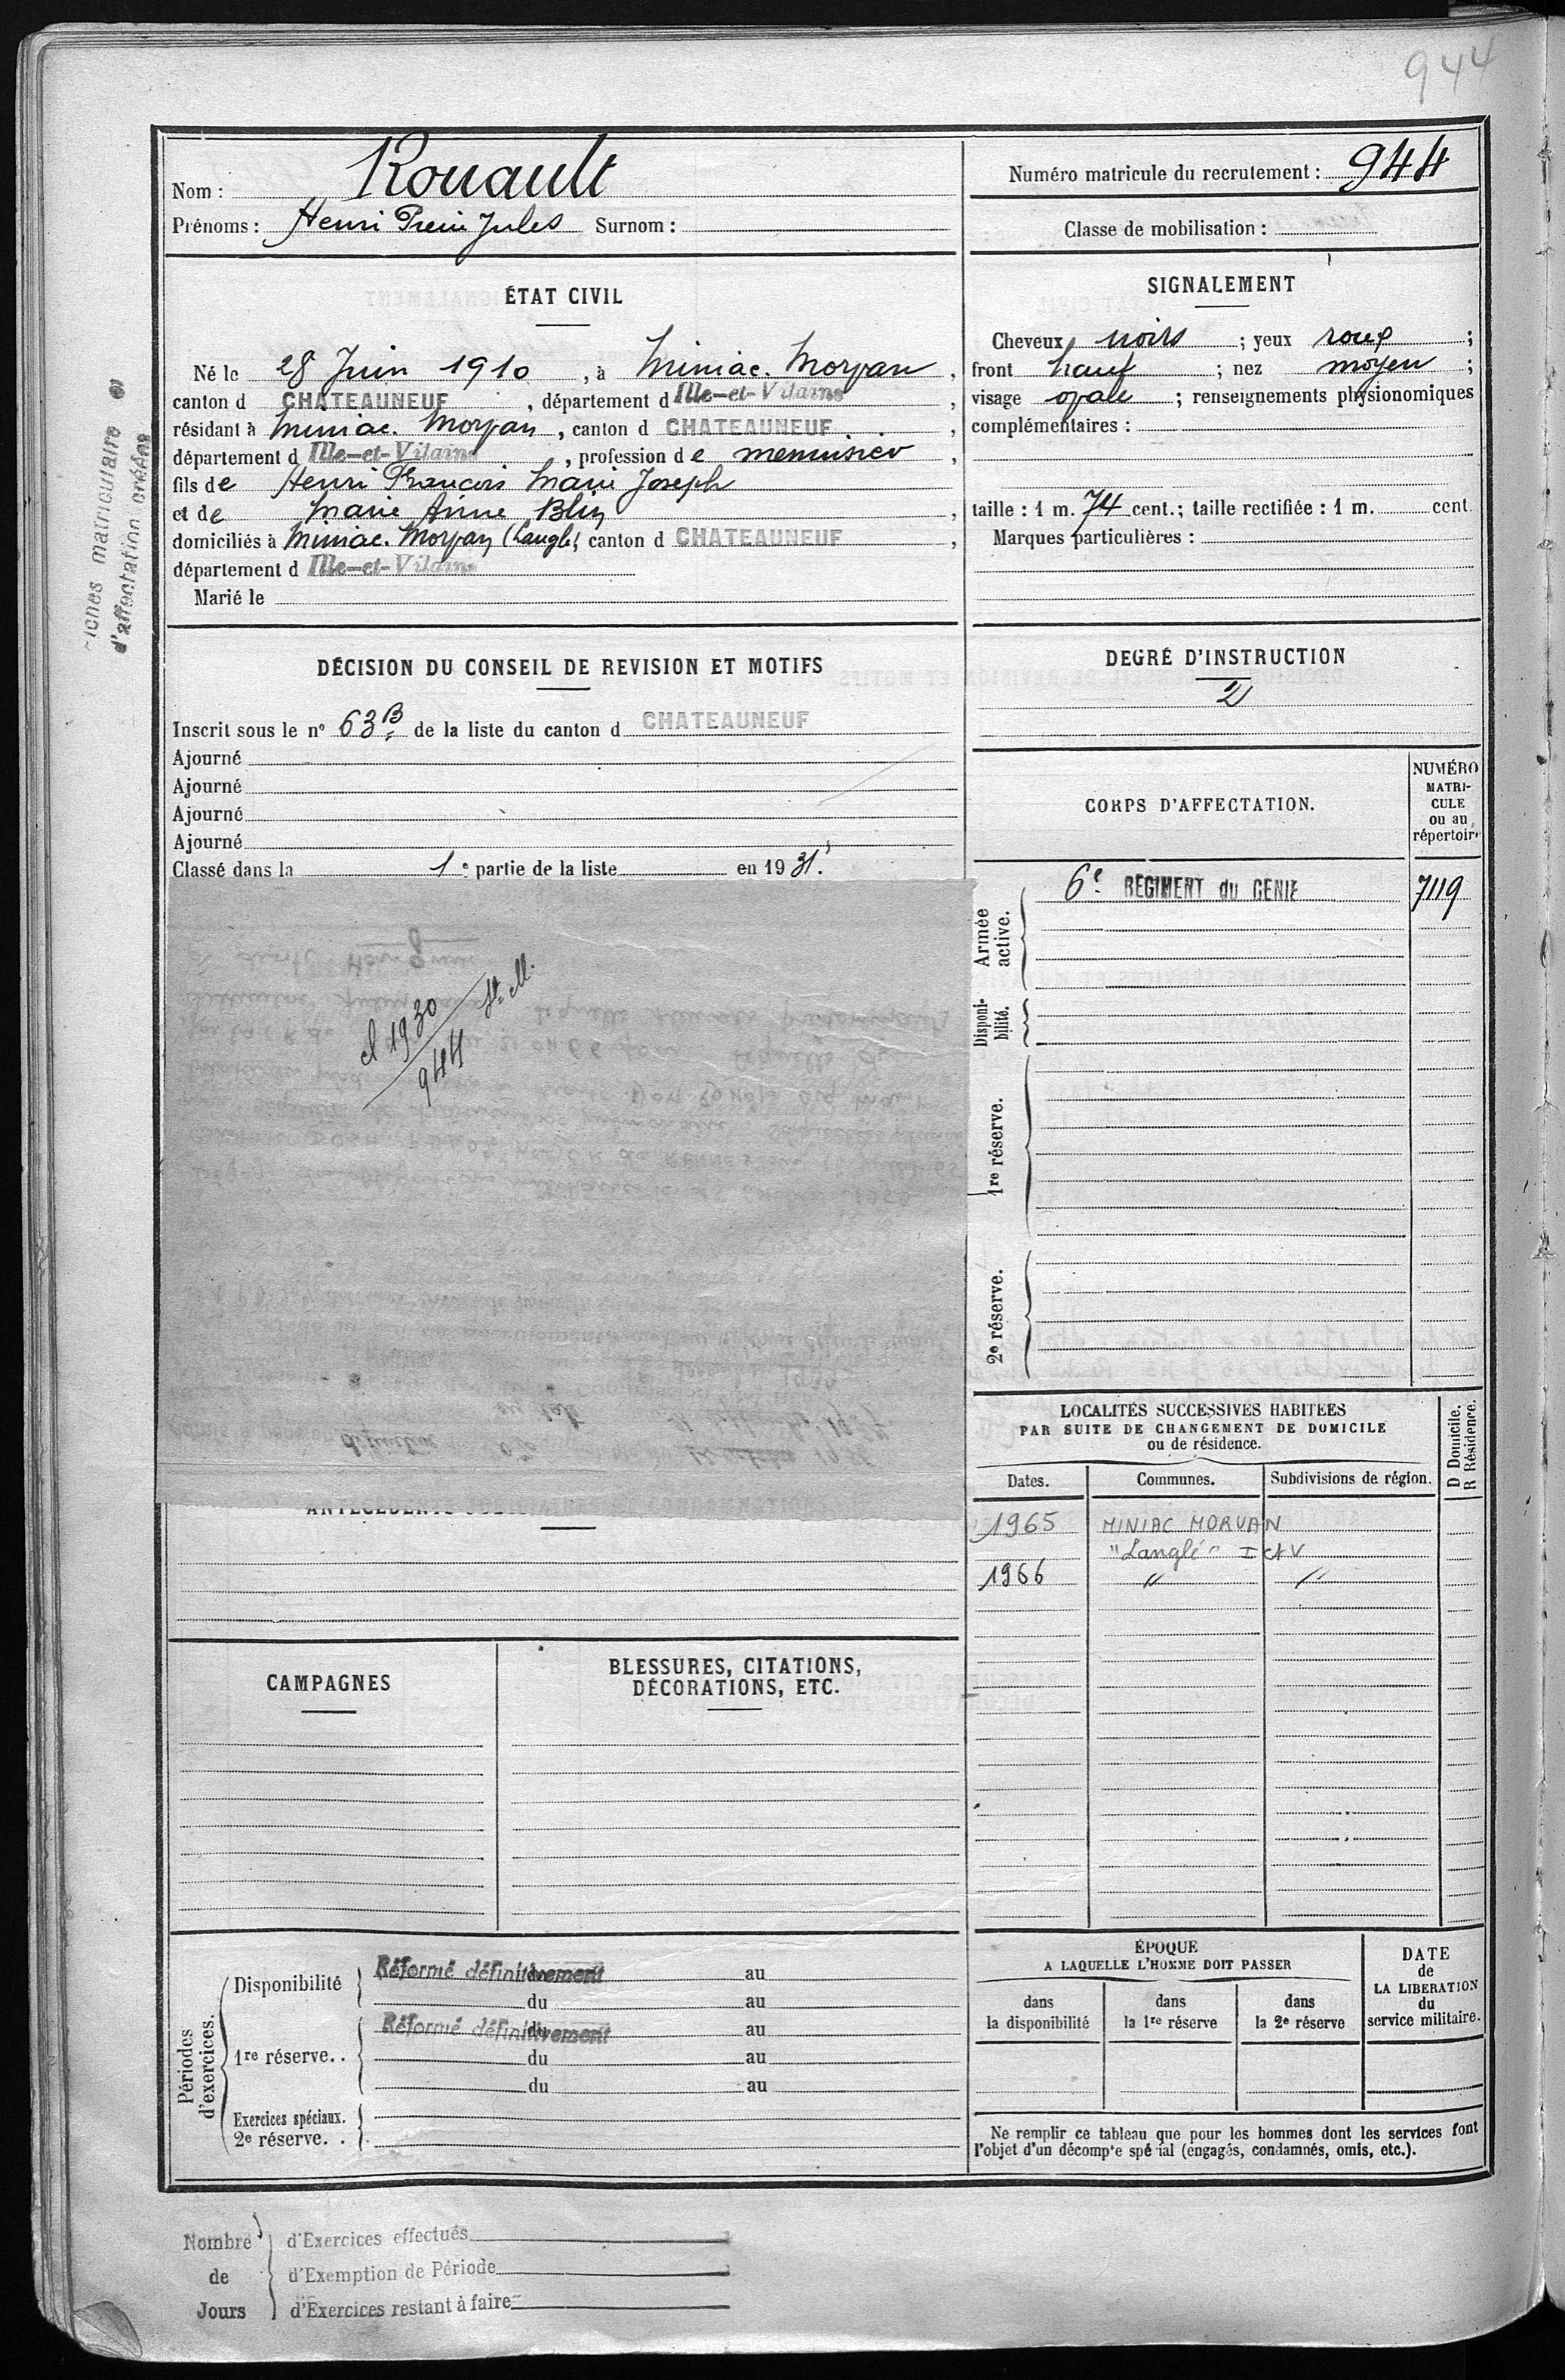 944
Nom : Rouault
Prénoms : Henri Pierre Jules Surnom :
Numéro matricule du recrutement : 944
Classe de mobilisation :
ÉTAT CIVIL
Né le 28 Juin 1910, à Miniac. Morvan,
canton d CHATEAUNEUF, département d Ille-et-Vilaine,
résidant à Miniac. Morvan, canton d CHATEAUNEUF,
département d Ille-et-Vilaine, profession de menuisier,
fils de Henri François Marie Joseph
et de Marie Anne Blin,
domiciliés à Miniac. Morvan (Langle), canton d CHATEAUNEUF,
département d Ille-et-Vilaine
Marié le
SIGNALEMENT
Cheveux noirs ; yeux roux ;
front haut ; nez moyen ;
visage ovale ; renseignements physionomiques
complémentaires :
taille : 1 m. 74 cent.; taille rectifiée : 1 m. cent.
Marques particulières :
d'affectation créées
DÉCISION DU CONSEIL DE REVISION ET MOTIFS
Inscrit sous le n° 63 B de la liste du canton d CHATEAUNEUF
Ajourné
Ajourné
Ajourné
Ajourné
Classé dans la 1e partie de la liste en 1931.
cl 1930 St. M.
944
DEGRÉ D'INSTRUCTION
2
CORPS D'AFFECTATION.
NUMÉRO
MATRI-
CULE
ou au
répertoire
Armée
active.
6e REGIMENT du GENIE 7119
Disponi-
bilité.
1re réserve.
2e réserve.
LOCALITÉS SUCCESSIVES HABITÉES
PAR SUITE DE CHANGEMENT DE DOMICILE
ou de résidence.
D Domicile.
R Résidence.
Dates. Communes. Subdivisions de région.
1965 MINIAC MORVAN
"Langlé" I et V
1966 " "
CAMPAGNES
BLESSURES, CITATIONS,
DÉCORATIONS, ETC.
Périodes
d'exercices.
Disponibilité
Réformé définitivement du au
du au
1re réserve..
Réformé définitivement du au
du au
du au
Exercices spéciaux.
2e réserve. .
ÉPOQUE
A LAQUELLE L'HOMME DOIT PASSER
dans
la disponibilité
dans
la 1re réserve
dans
la 2e réserve
DATE
de
LA LIBERATION
du
service militaire.
Ne remplir ce tableau que pour les hommes dont les services font
l'objet d'un décompte spécial (engagés, condamnés, omis, etc.).
Nombre
de
Jours
d'Exercices effectués
d'Exemption de Période
d'Exercices restant à faire